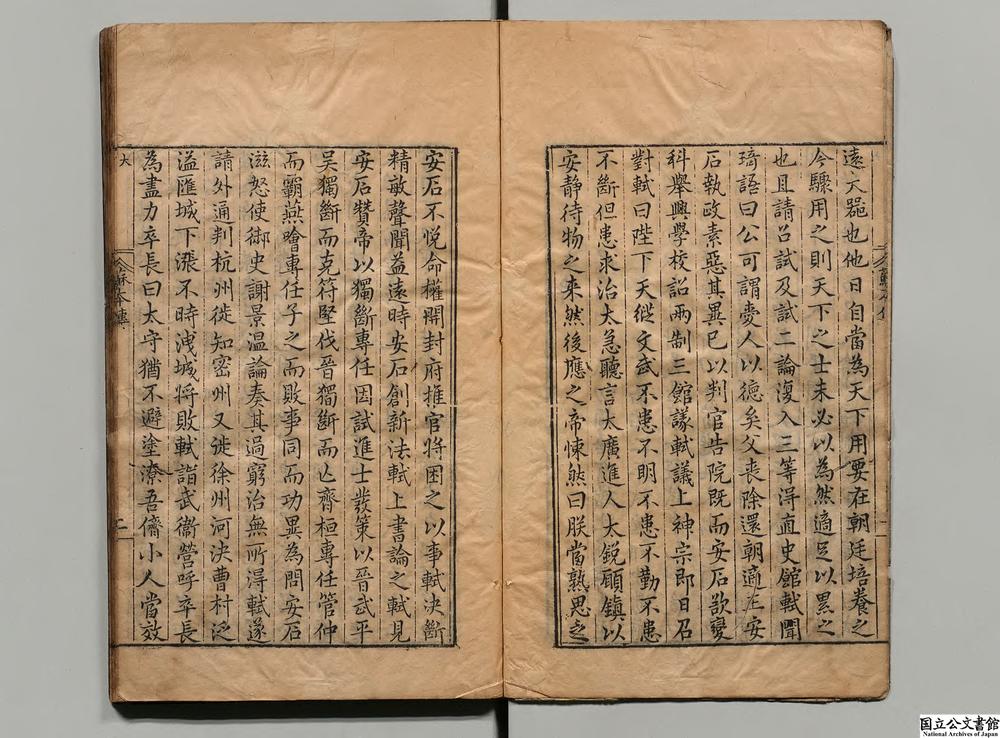 遠大器也他日自當為天下用要在朝廷培養之
今驟用之則天下之士未必以為然適足以累之
也且請召試及試二論復入三等得直史館軾聞
琦語曰公可謂愛人以德矣父喪除還朝適王安
石執政素惡其異己以判官告院既而安石欲變
科舉興學校詔兩制三館議軾議上神宗即日召
對軾曰陛下天縱文武不患不明不患不勤不患
不斷但患求治太急聽言太廣進人太銳願鎮以
安静待物之来然後應之帝悚然曰朕當熟思之
安石不悅命權開封府推官將困之以事軾決斷
精敏聲聞益遠時安石創新法軾上書論之軾見
安石贊帝以獨斷專任因試進士發策以晉武平
吳獨斷而克符堅伐晉獨斷而亡齊桓專任管仲
而霸燕噲專任子之而敗事同而功異為問安石
滋怒使御史謝景温論奏其過窮治無所得軾遂
請外通判杭州徙知密州又徙徐州河決曹村泛
溢匯城下漲不時洩城将敗軾詣武衞營呼卒長
為盡力卒長曰太守猶不避塗潦吾儕小人當效
蘇本傳
二
大
国立公文書館
National Archives of Japan